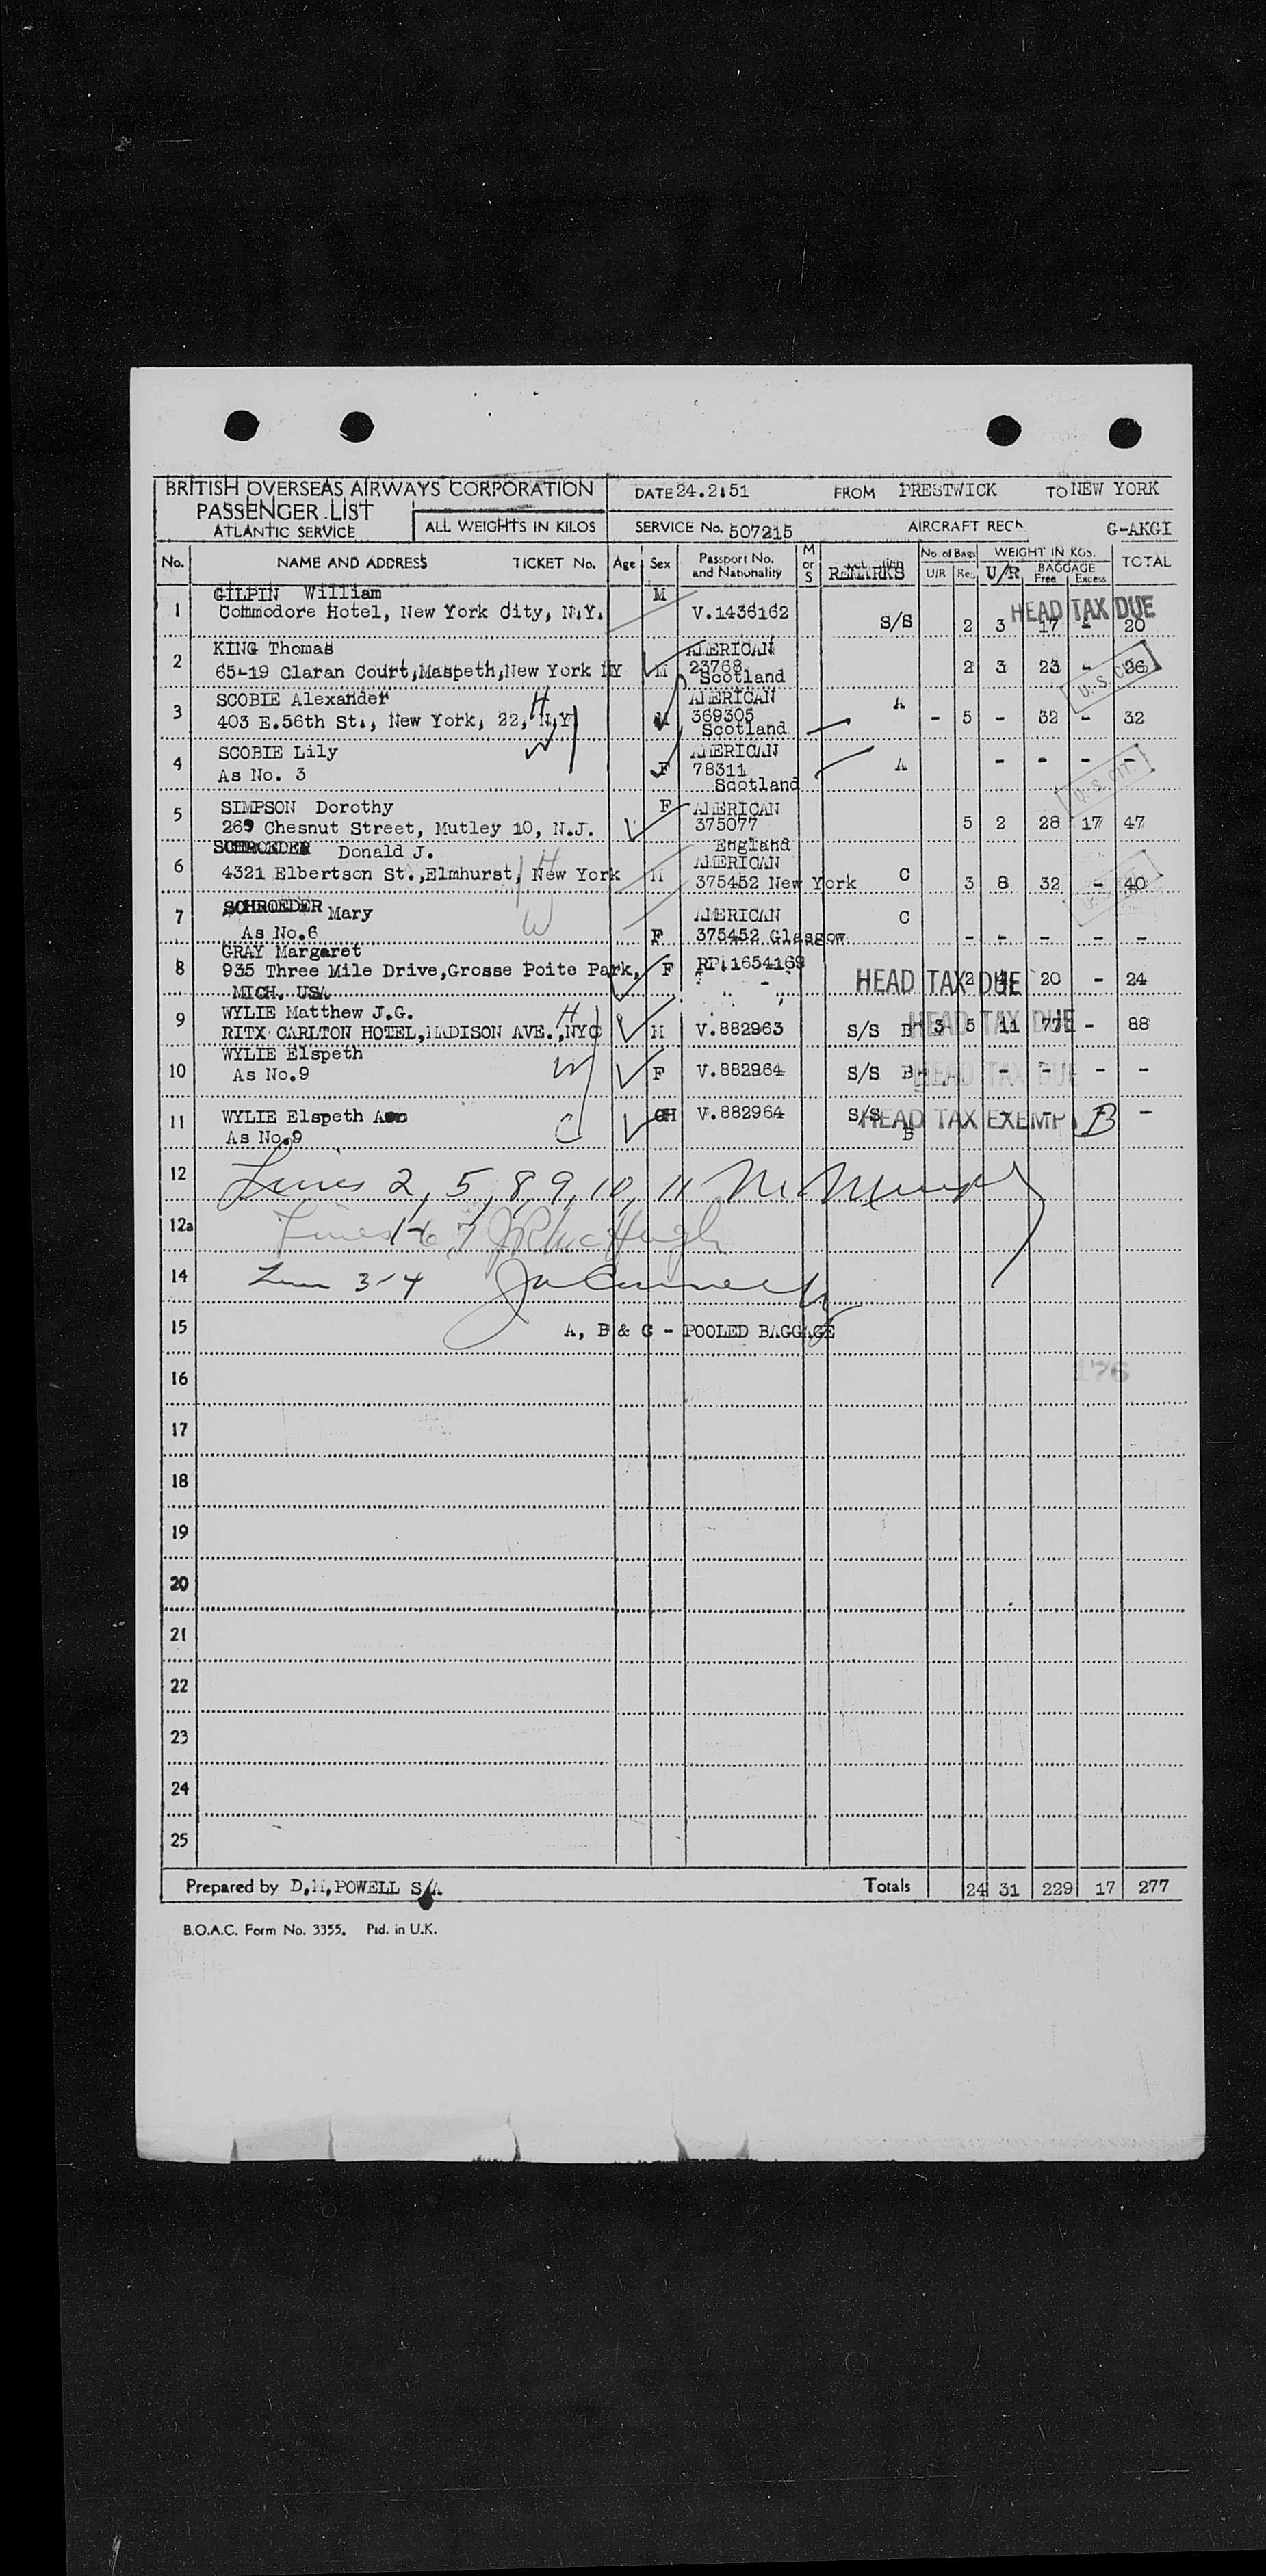 BRITISH OVERSEAS AIRWAYS CORPORATION
PASSENGER LIST
ATLANTIC SERVICE
ALL WEIGHTS IN KILOS
DATE 24.2.51 FROM PRESTWICK TO NEW YORK
SERVICE No. 507215 AIRCRAFT REG G-AKGI
No. NAME AND ADDRESS TICKET No. Age Sex Passport No. and Nationality M or S REMARKS No. of Bags U/R Re. WEIGHT IN KGS. U/R BAGGAGE Free Excess TOTAL
GILPIN William M
1 Commodore Hotel, New York City, N.Y. V.1436162 S/S 2 3 17 - 20
HEAD TAX DUE
KING Thomas AMERICAN
2 65-19 Claran Court,Maspeth,New York NY M 23768 2 3 23 - 26
Scotland U.S. CIT.
SCOBIE Alexander H AMERICAN A
3 403 E.56th St., New York, 22, N.Y. M 369305 - 5 - 32 - 32
W Scotland
SCOBIE Lily AMERICAN A
4 As No. 3 F 78311 - - - -
Scotland U.S. CIT.
SIMPSON Dorothy F AMERICAN
5 269 Chesnut Street, Mutley 10, N.J. 375077 5 2 28 17 47
England
SCHROEDER Donald J. AMERICAN
6 4321 Elbertson St.,Elmhurst, New York H M 375452 New York C 3 8 32 - 40
7 SCHROEDER Mary W AMERICAN C
As No.6 F 375452 Glasgow - - - - -
GRAY Margaret RP.1654169
8 935 Three Mile Drive,Grosse Poite Park, F 2 4 20 - 24
MICH. USA HEAD TAX DUE
WYLIE Matthew J.G. H
9 RITX CARLTON HOTEL,MADISON AVE.,NYC M V.882963 S/S B 3 5 11 77 - 88
HEAD TAX DUE
WYLIE Elspeth W
10 As No.9 F V.882964 S/S B - - - -
HEAD TAX DUE
11 WYLIE Elspeth Ann CH V.882964 S/S - - - -
As No.9 C B
HEAD TAX EXEMPT B
12 Lines 2, 5, 8, 9, 10, 11
12a Lines 1-6 7
14 Lines 3-4
15 A, B & C - POOLED BAGGAGE
176
16
17
18
19
20
21
22
23
24
25
Prepared by D.M.POWELL S/A Totals 24 31 229 17 277
B.O.A.C. Form No. 3355. Ptd. in U.K.